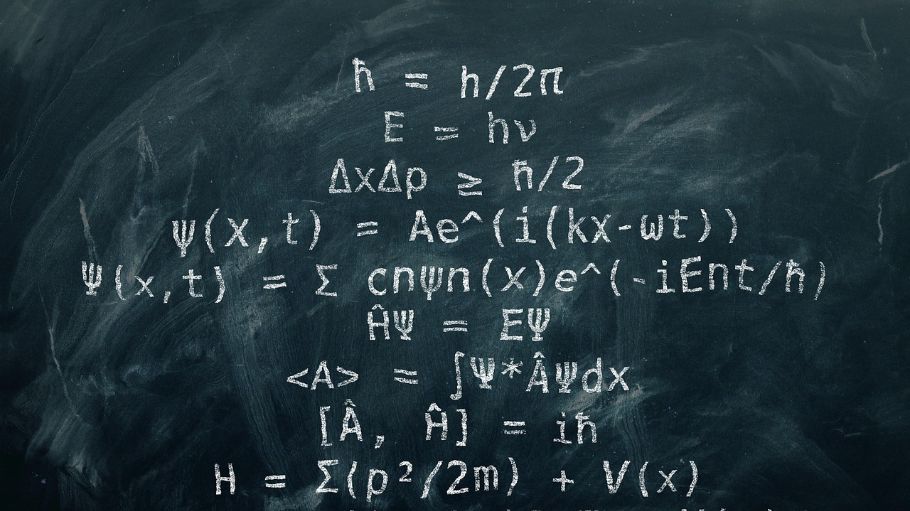 ħ = h/2π
E = hν
ΔxΔp ≥ ħ/2
ψ(x,t) = Ae^(i(kx-ωt))
Ψ(x,t) = Σ cnψn(x)e^(-iEnt/ħ)
ĤΨ = EΨ
<A> = ∫Ψ*ÂΨdx
[Â, Ĥ] = iħ
H = Σ(p²/2m) + V(x)